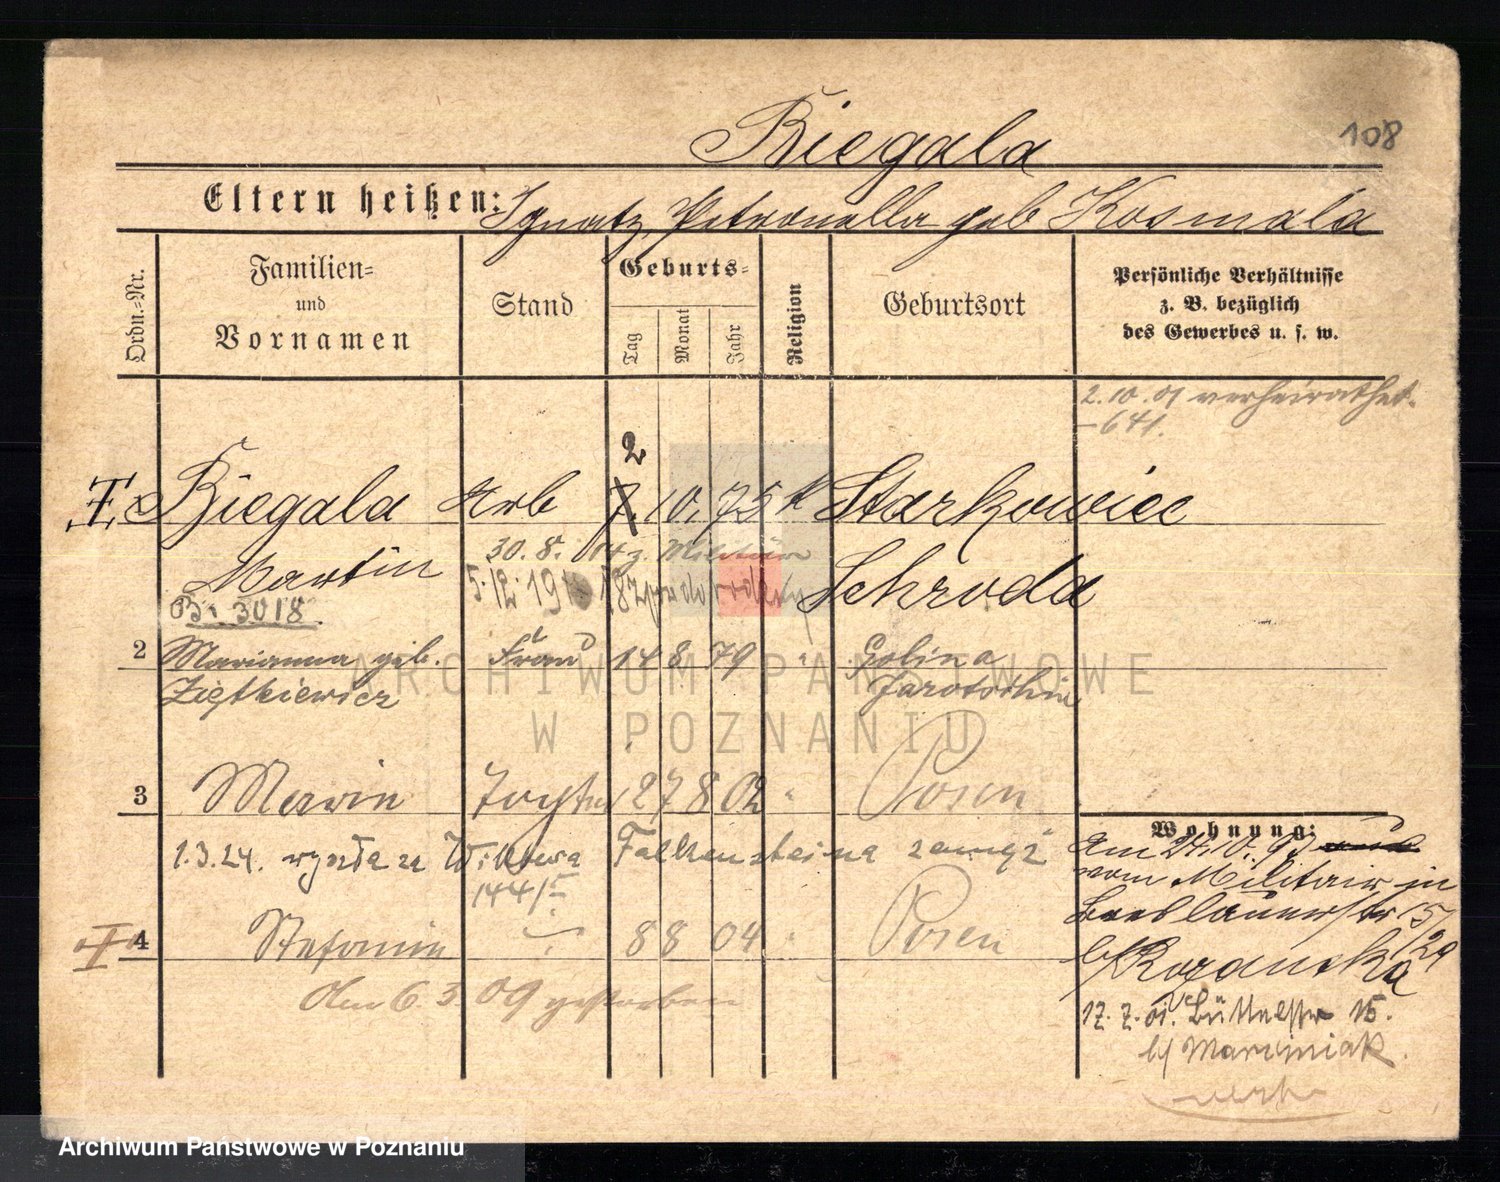 108
Biegala
Eltern heißen: Ignatz, Petronella geb Kosmala
Ordn.-Nr.
Familien-
und
Vornamen
Stand
Geburts-
Tag
Monat
Jahr
Religion
Geburtsort
Persönliche Verhältnisse
z. B. bezüglich
des Gewerbes u. s. w.
2.10.01 verheirathet.
-641.
2
Biegala Arb 7. 10. 75 k Starkowiec
Martin Schroda
30. 8. 04 z. Militär
5.12.19
B: 3018
2 Marianna geb. Frau 14 8 79 " Golina
Ziętkiewicz Jarotschin
ARCHIWUM PAŃSTWOWE
W POZNANIU
3 Marvin Tocht 27 8 02 " Posen
1.3.24. wyszła za Wiktora Falkensteina zamąż
144/5
4 Stefanie 8 8 04 " Posen
Am 6.3.09 gestorben
Wohnung:
Am 24.10.97
vom Militair in
Breslauerstr 15/
/29
b/
17. 7. 01. Büttelstr 15.
b/ Marciniak.
Archiwum Państwowe w Poznaniu